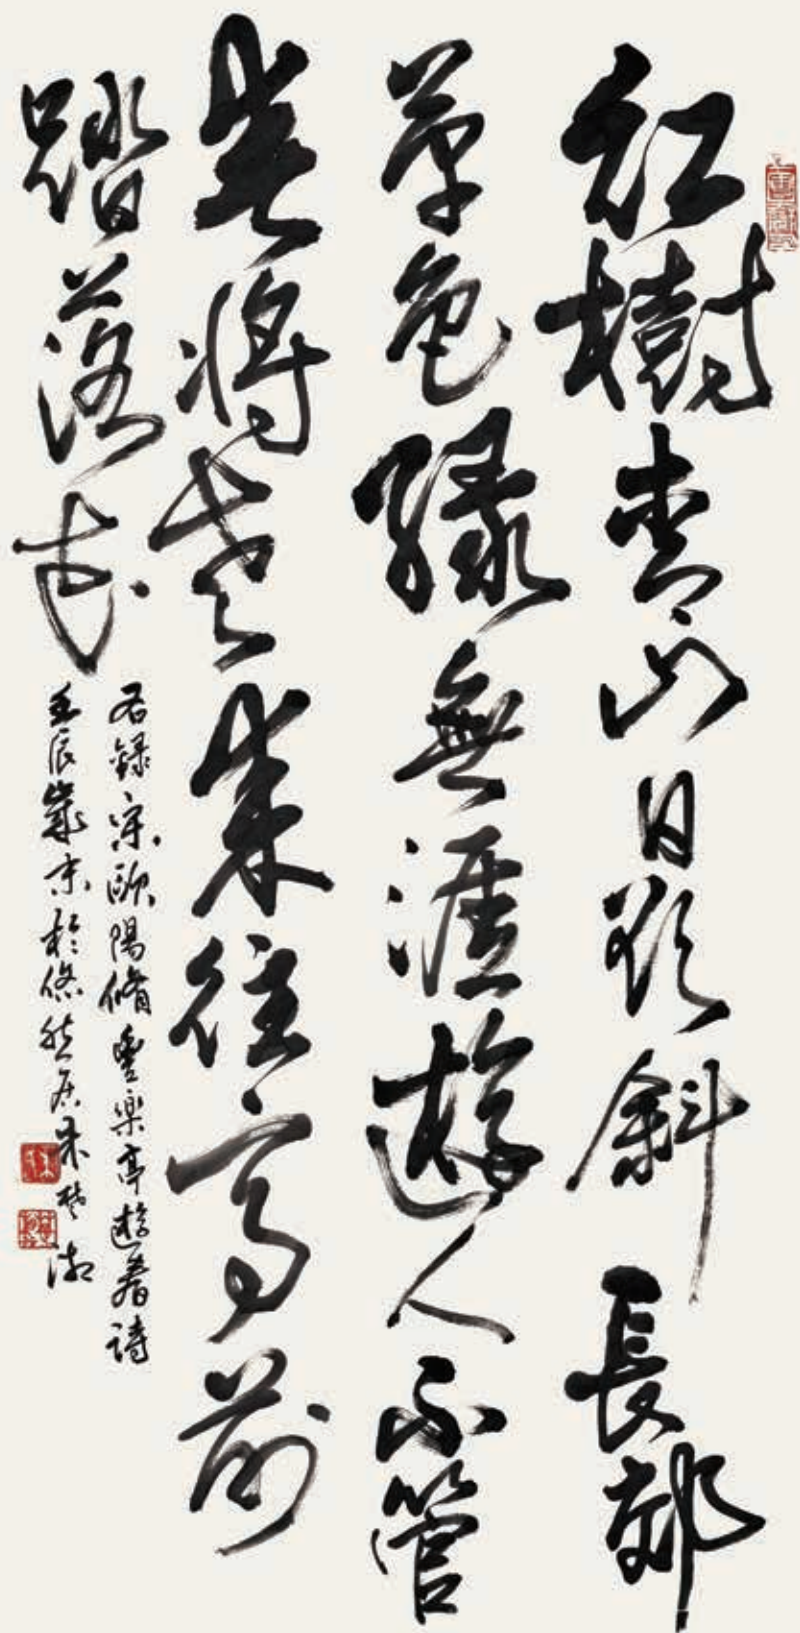 紅樹青山日欲斜長郊
草色綠無涯遊人不管
春將老來往亭前
踏落花
右錄宋歐陽脩豐樂亭遊春詩
壬辰歲末於悠然居朱